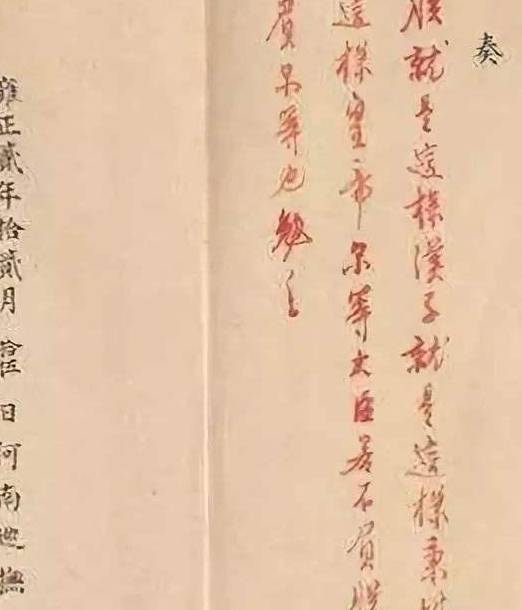 奏
朕就是這樣漢子就是這樣秉
這樣皇帝尔等大臣若不負朕
負尔等也勉之
雍正貳年拾貳月拾伍日河南巡撫